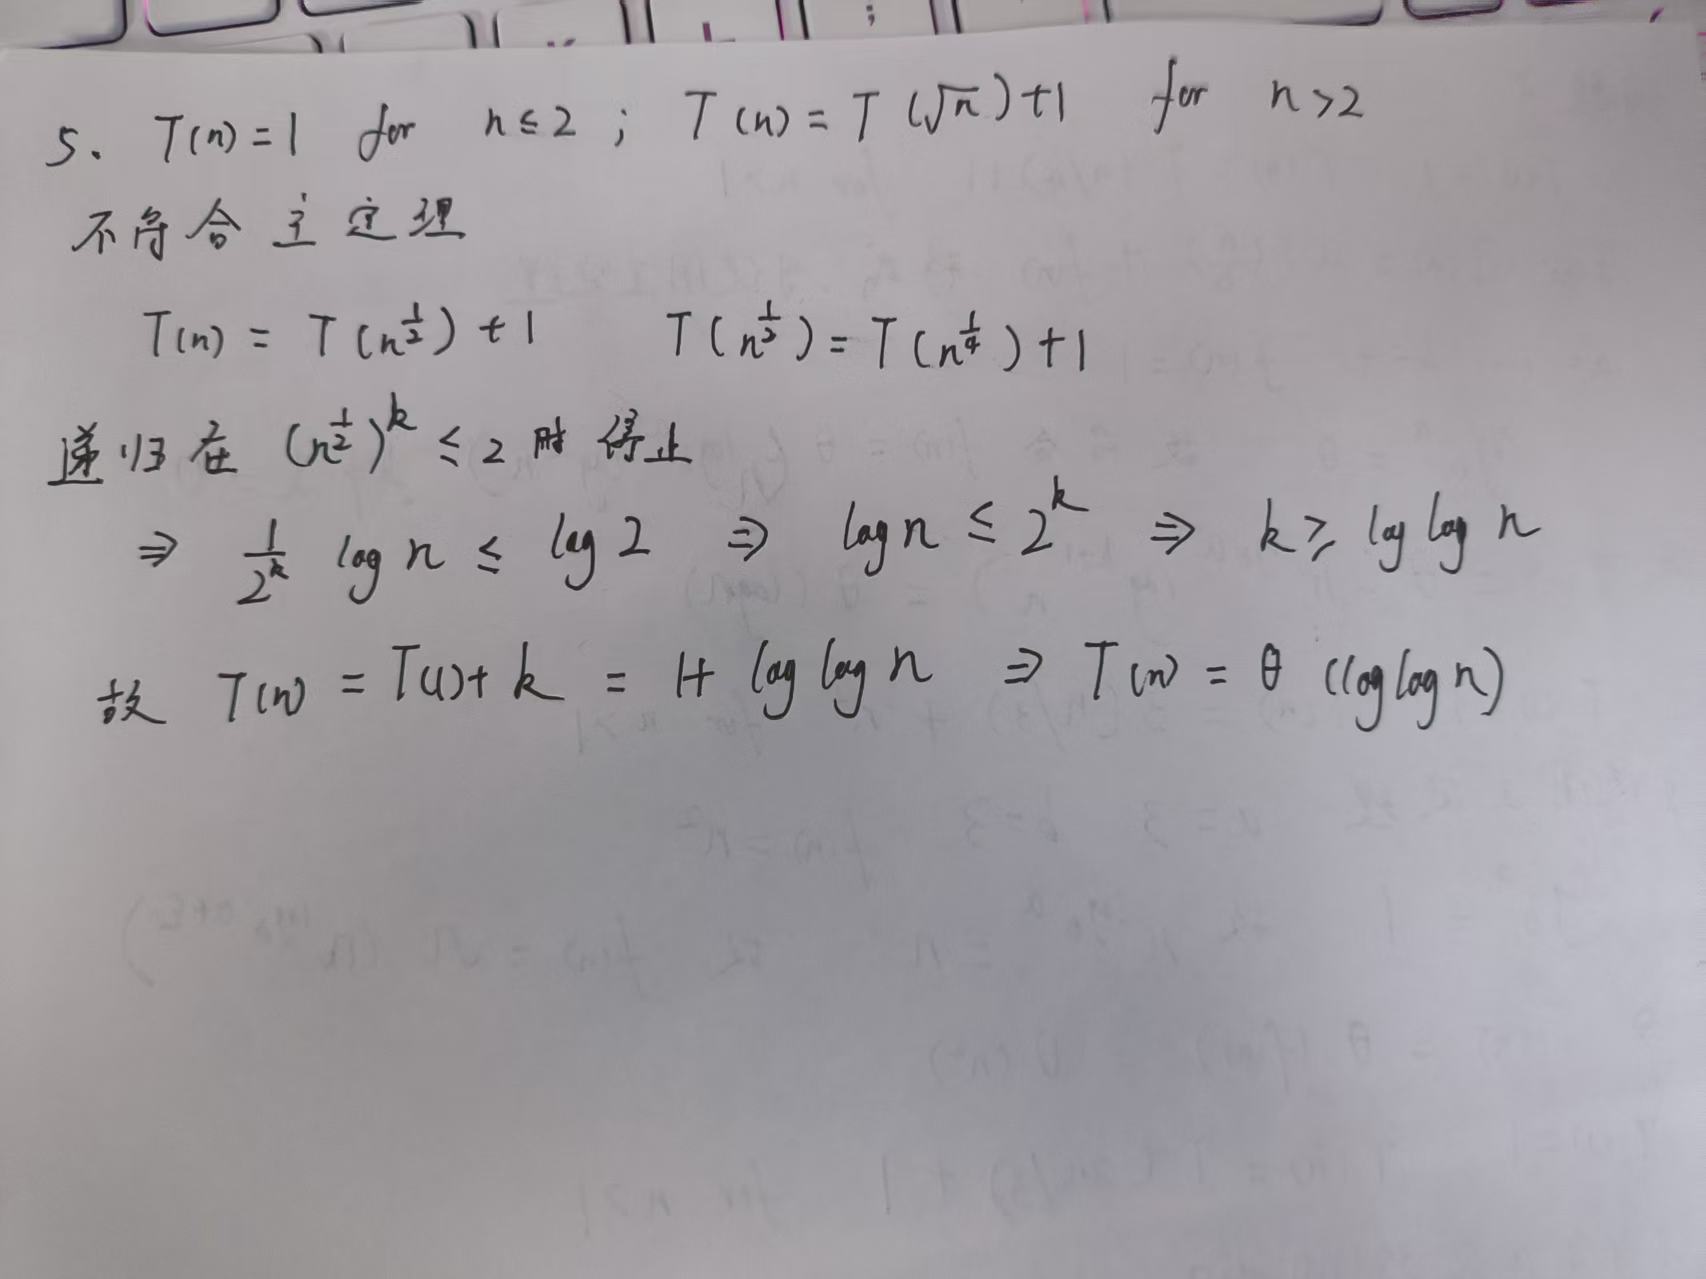 5. T(n)=1 for n≤2 ; T(n)=T(√n)+1 for n>2
不符合主定理
T(n) = T(n^{1/2})+1 T(n^{1/2})=T(n^{1/4})+1
递归在 (n^{1/2})^k ≤2 时停止
⇒ 1/2^k log n ≤ log 2 ⇒ log n ≤ 2^k ⇒ k ≥ log log n
故 T(n) = T(1)+k = 1+ log log n ⇒ T(n) = θ (log log n)